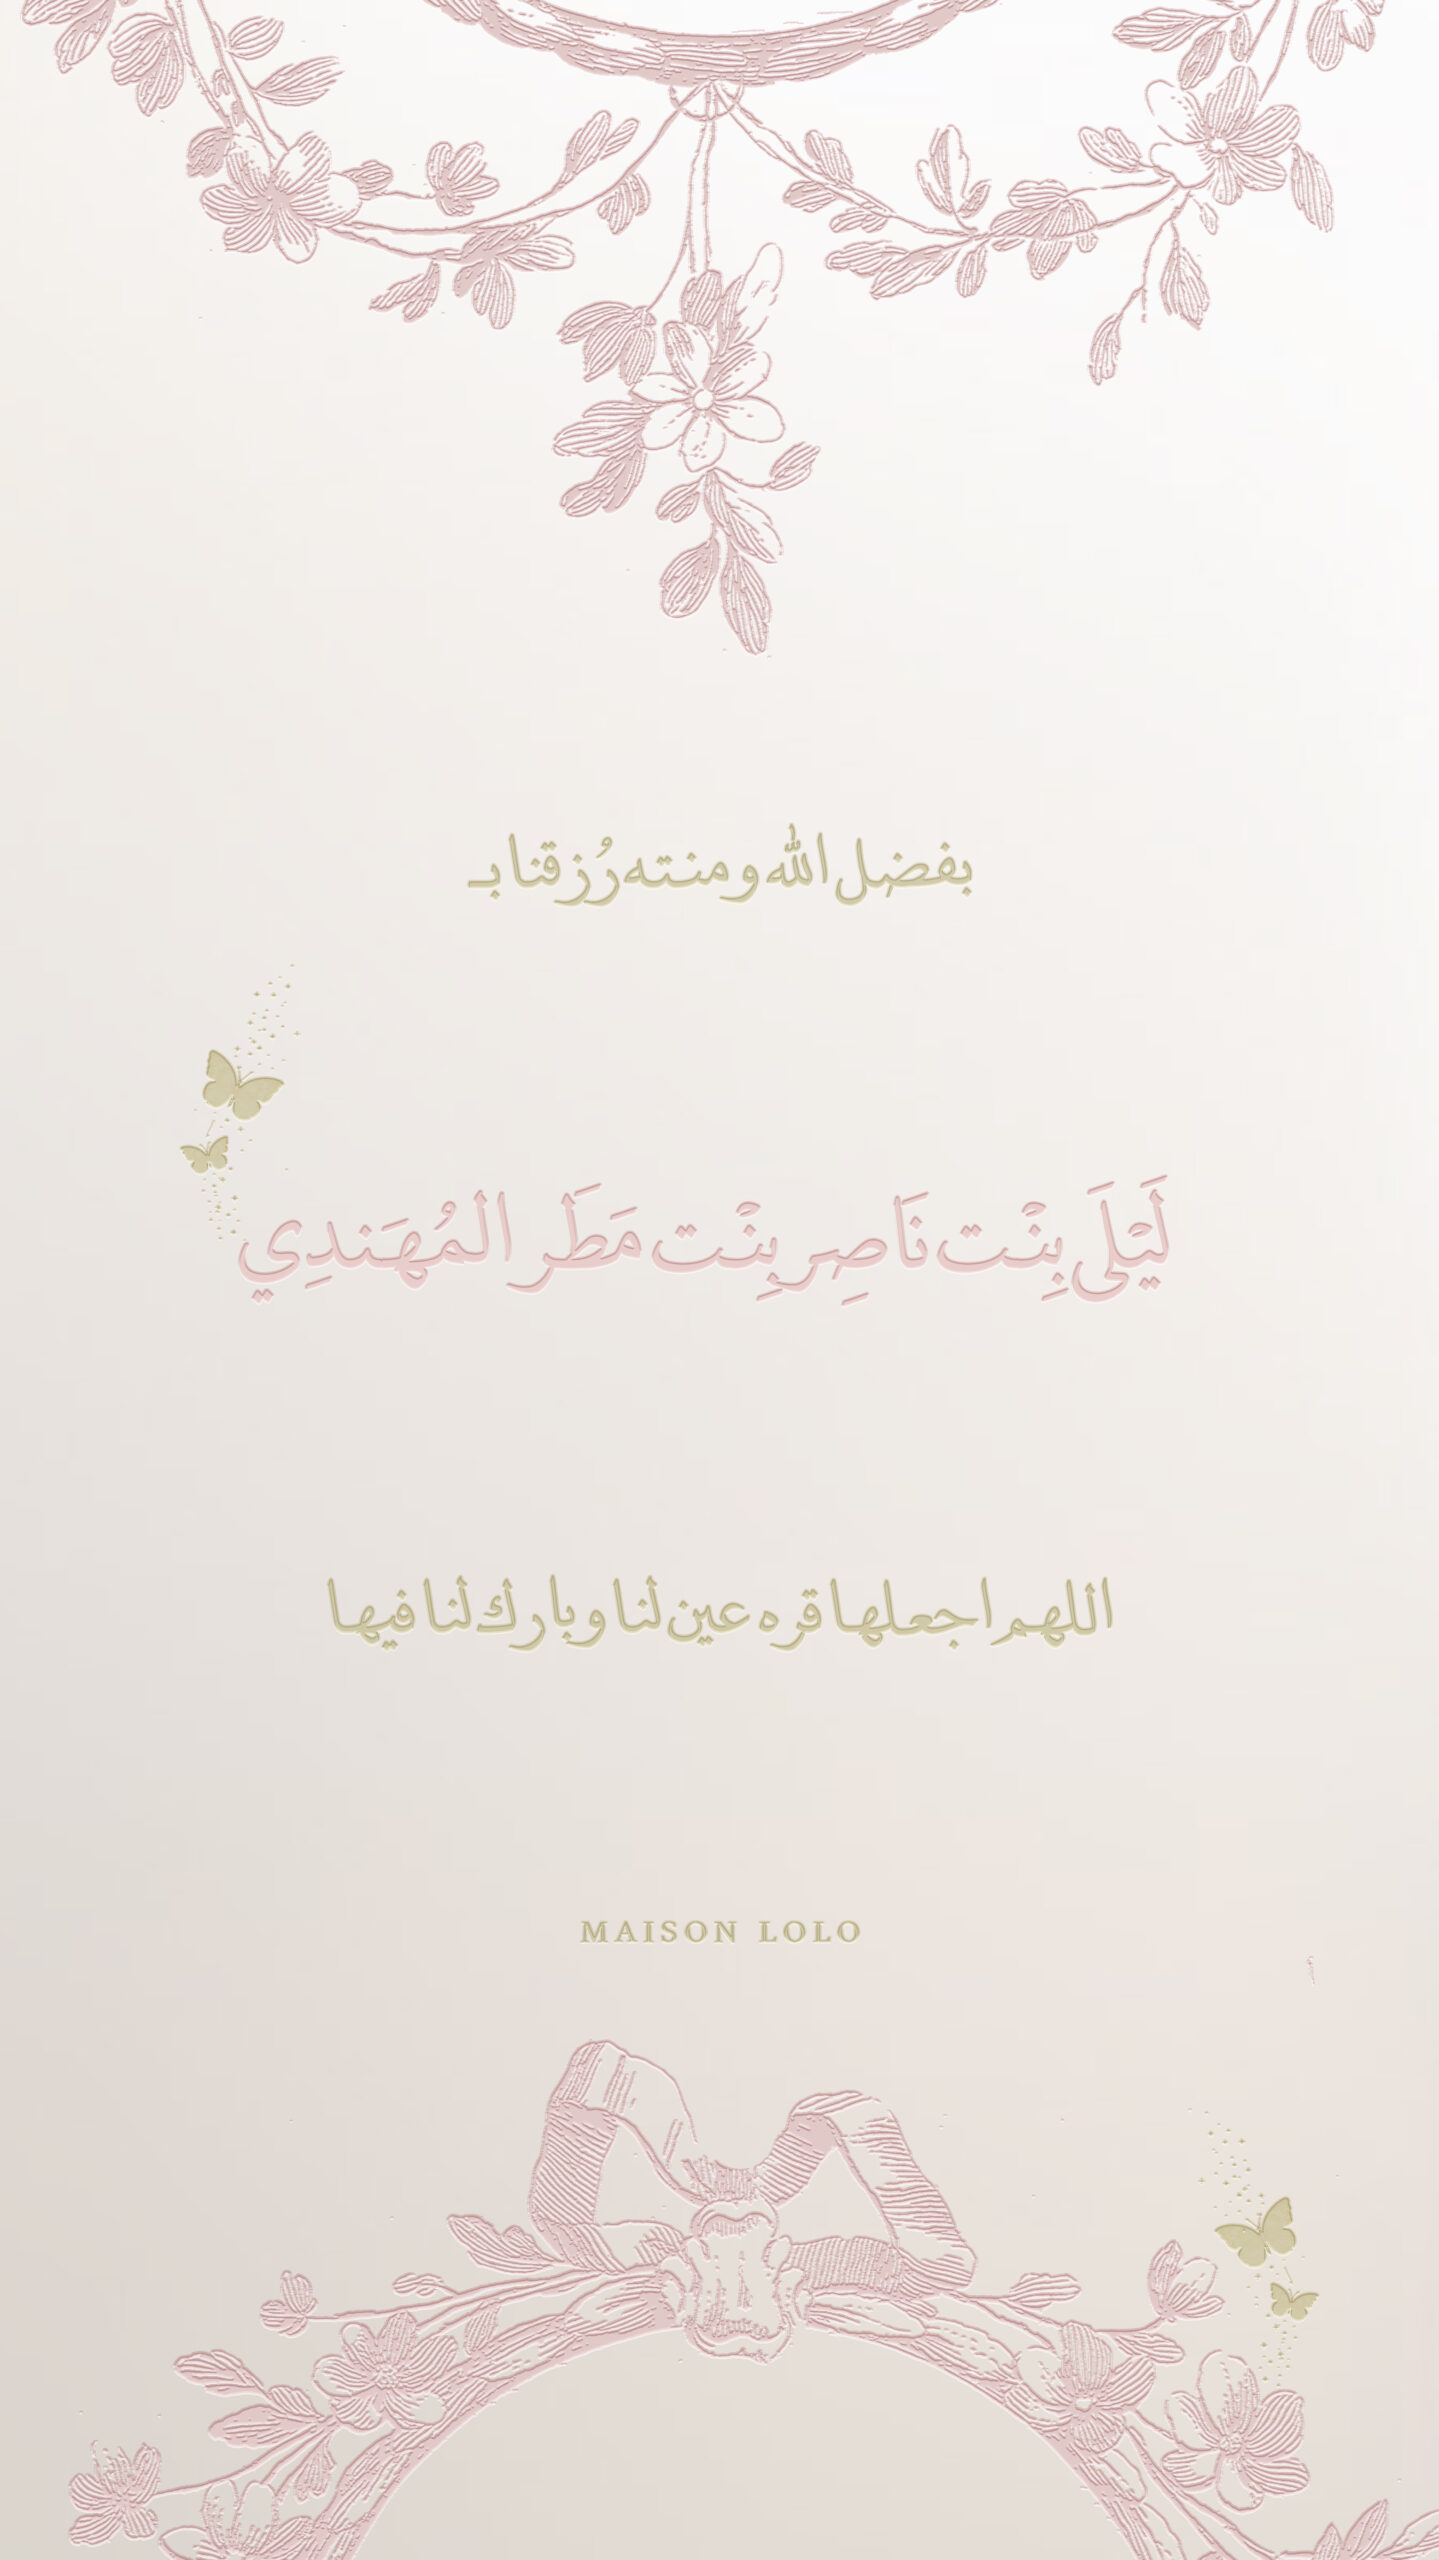 بفضل الله ومنته رُزقنا بـ
لَيْلَى بِنْت نَاصِر بِنْت مَطَر المُهَندِي
اللهم اجعلها قره عين لنا وبارك لنا فيها
MAISON LOLO